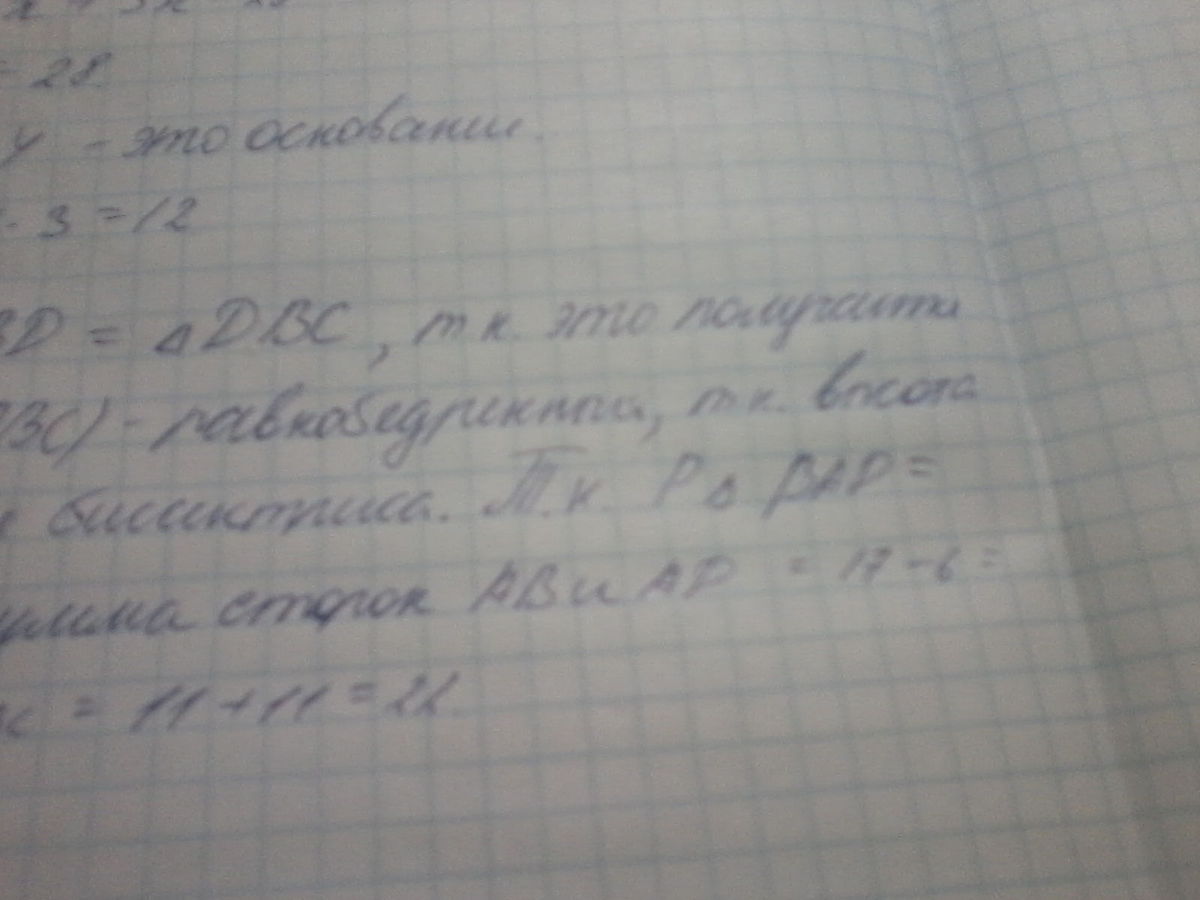 = 28.
4 - это основание.
· 3 = 12
BD = △DBC, т.к. это получается
BC) - равнобедренный, т.к. высота
и биссектриса. Т.к. P△ BAD =
сумма сторон AB и AD = 17 - 6 =
= 11 + 11 = 22.